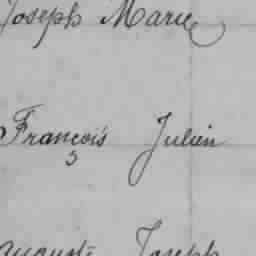 Joseph Marie
François Julien
Auguste Joseph